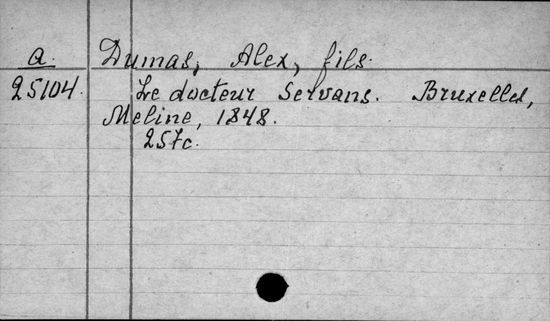 a. Dumas, Alex, fils.
25104. Le docteur Servans. Bruxelles,
Meline, 1848.
257c.